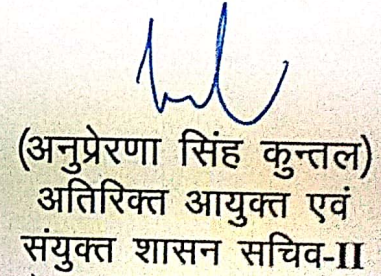 (अनुप्रेरणा सिंह कुन्तल)
अतिरिक्त आयुक्त एवं
संयुक्त शासन सचिव-II